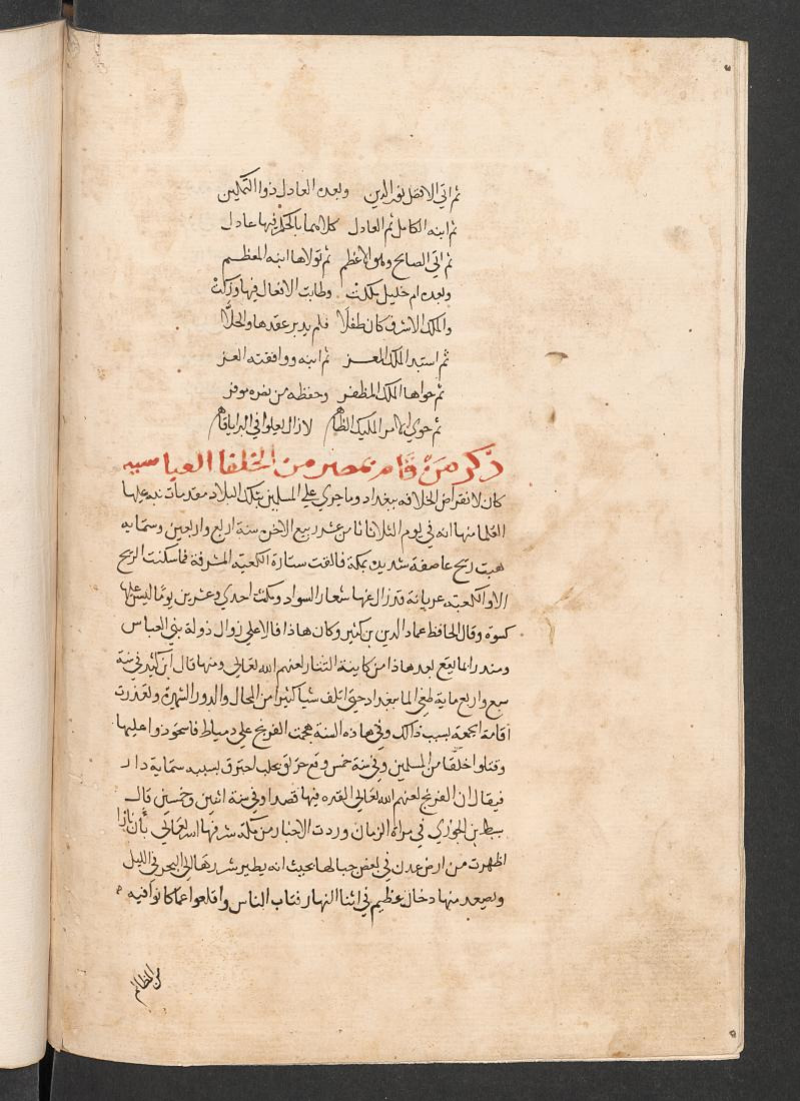 ثم اتى الافضل نور الدين وبعده العادل ذوا التمكين
ثم ابنه الكامل ثم العادل كلاهما بالحكم فيها عادل
ثم اتى الصالح وهو الاعظم ثم تولاها ابنه المعظم
وبعده ام خليل ملكت وطابت الافعال فيها وزكت
والملك الاشرف كان طفلا فلم يدبر عقدها والحلا
ثم استبد الملك المعز ثم ابنه ووافقته العز
ثم حواها الملك المظفر وحفظه من نصره موفر
ثم حوى الامر المليك الظاهر لا زال يعلوا في البرايا قاهر
ذكر من قام بمصر من الخلفا العباسيه
كان لانقراض الخلافه ببغداد وما جرى على المسلمين بتلك البلاد مقدمات نبه عليها
العلما منها انه في يوم الثلاثا ثامن عشر ربيع الاخر سنة اربع واربعين وستمايه
هبت ريح عاصفة شديده بمكة فالقت ستارة الكعبة المشرفة فما سكنت الريح
الا والكعبة عريانة قد زال عنها شعار السواد ومكثت احدي وعشرين يوما ليس عليها
كسوة وقال الحافظ عماد الدين بن كثير وكان هاذا فالا على زوال دولة بني العباس
ومنذرا لما يقع بعد هاذا من كاينة التتار لعنهم الله تعالى ومنها قال ابن كثير في سنة
سبع واربع ماية طغى الما ببغداد حتى اتلف شيا كثيرا من المحال والدور الشهيرة وتعذرت
اقامة الجمعة بسبب ذالك وفي هاذه السنة هجمت الفرنج على دمياط فاستحوذوا عليها
وقتلوا خلقا من المسلمين وفي سنة خمس وقع حريق بحلب احترق بسببه ستماية دار
فيقال ان الفرنج لعنهم الله تعالى القوه فيها قصدا وفي سنة اثنين وخمسين قال
سبط بن الجوزي في مراة الزمان وردت الاخبار من مكة شرفها الله تعالى بأن نارا
اظهرت من ارض عدن في بعض جبالها بحيث انه يطير شررها الى البحر في الليل
ويصعد منها دخان عظيم في اثنا النهار فتاب الناس واقلعوا عما كانوا فيه
من المظالم